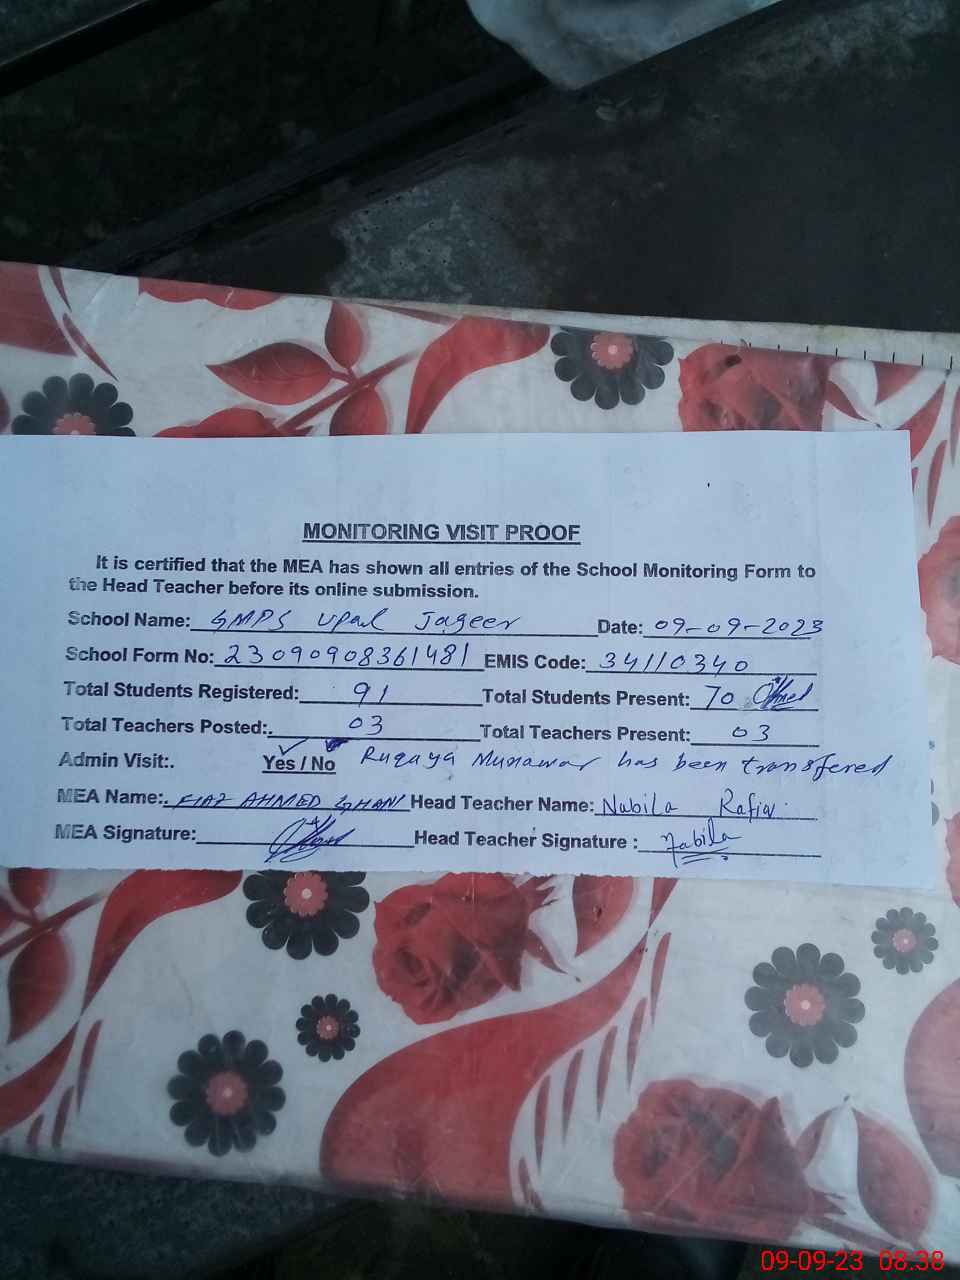 MONITORING VISIT PROOF
It is certified that the MEA has shown all entries of the School Monitoring Form to
the Head Teacher before its online submission.
School Name: GMPS Upal Jageer Date: 09-09-2023
School Form No: 23090908361481 EMIS Code: 34110340
Total Students Registered: 91 Total Students Present: 70
Total Teachers Posted:. 03 Total Teachers Present: 03
Admin Visit:. Yes / No Ruqaya Munawar has been transfered
MEA Name:. FIAZ AHMED GHANI Head Teacher Name: Nabila Rafiq.
MEA Signature: Head Teacher Signature : Nabila
09-09-23 08:38